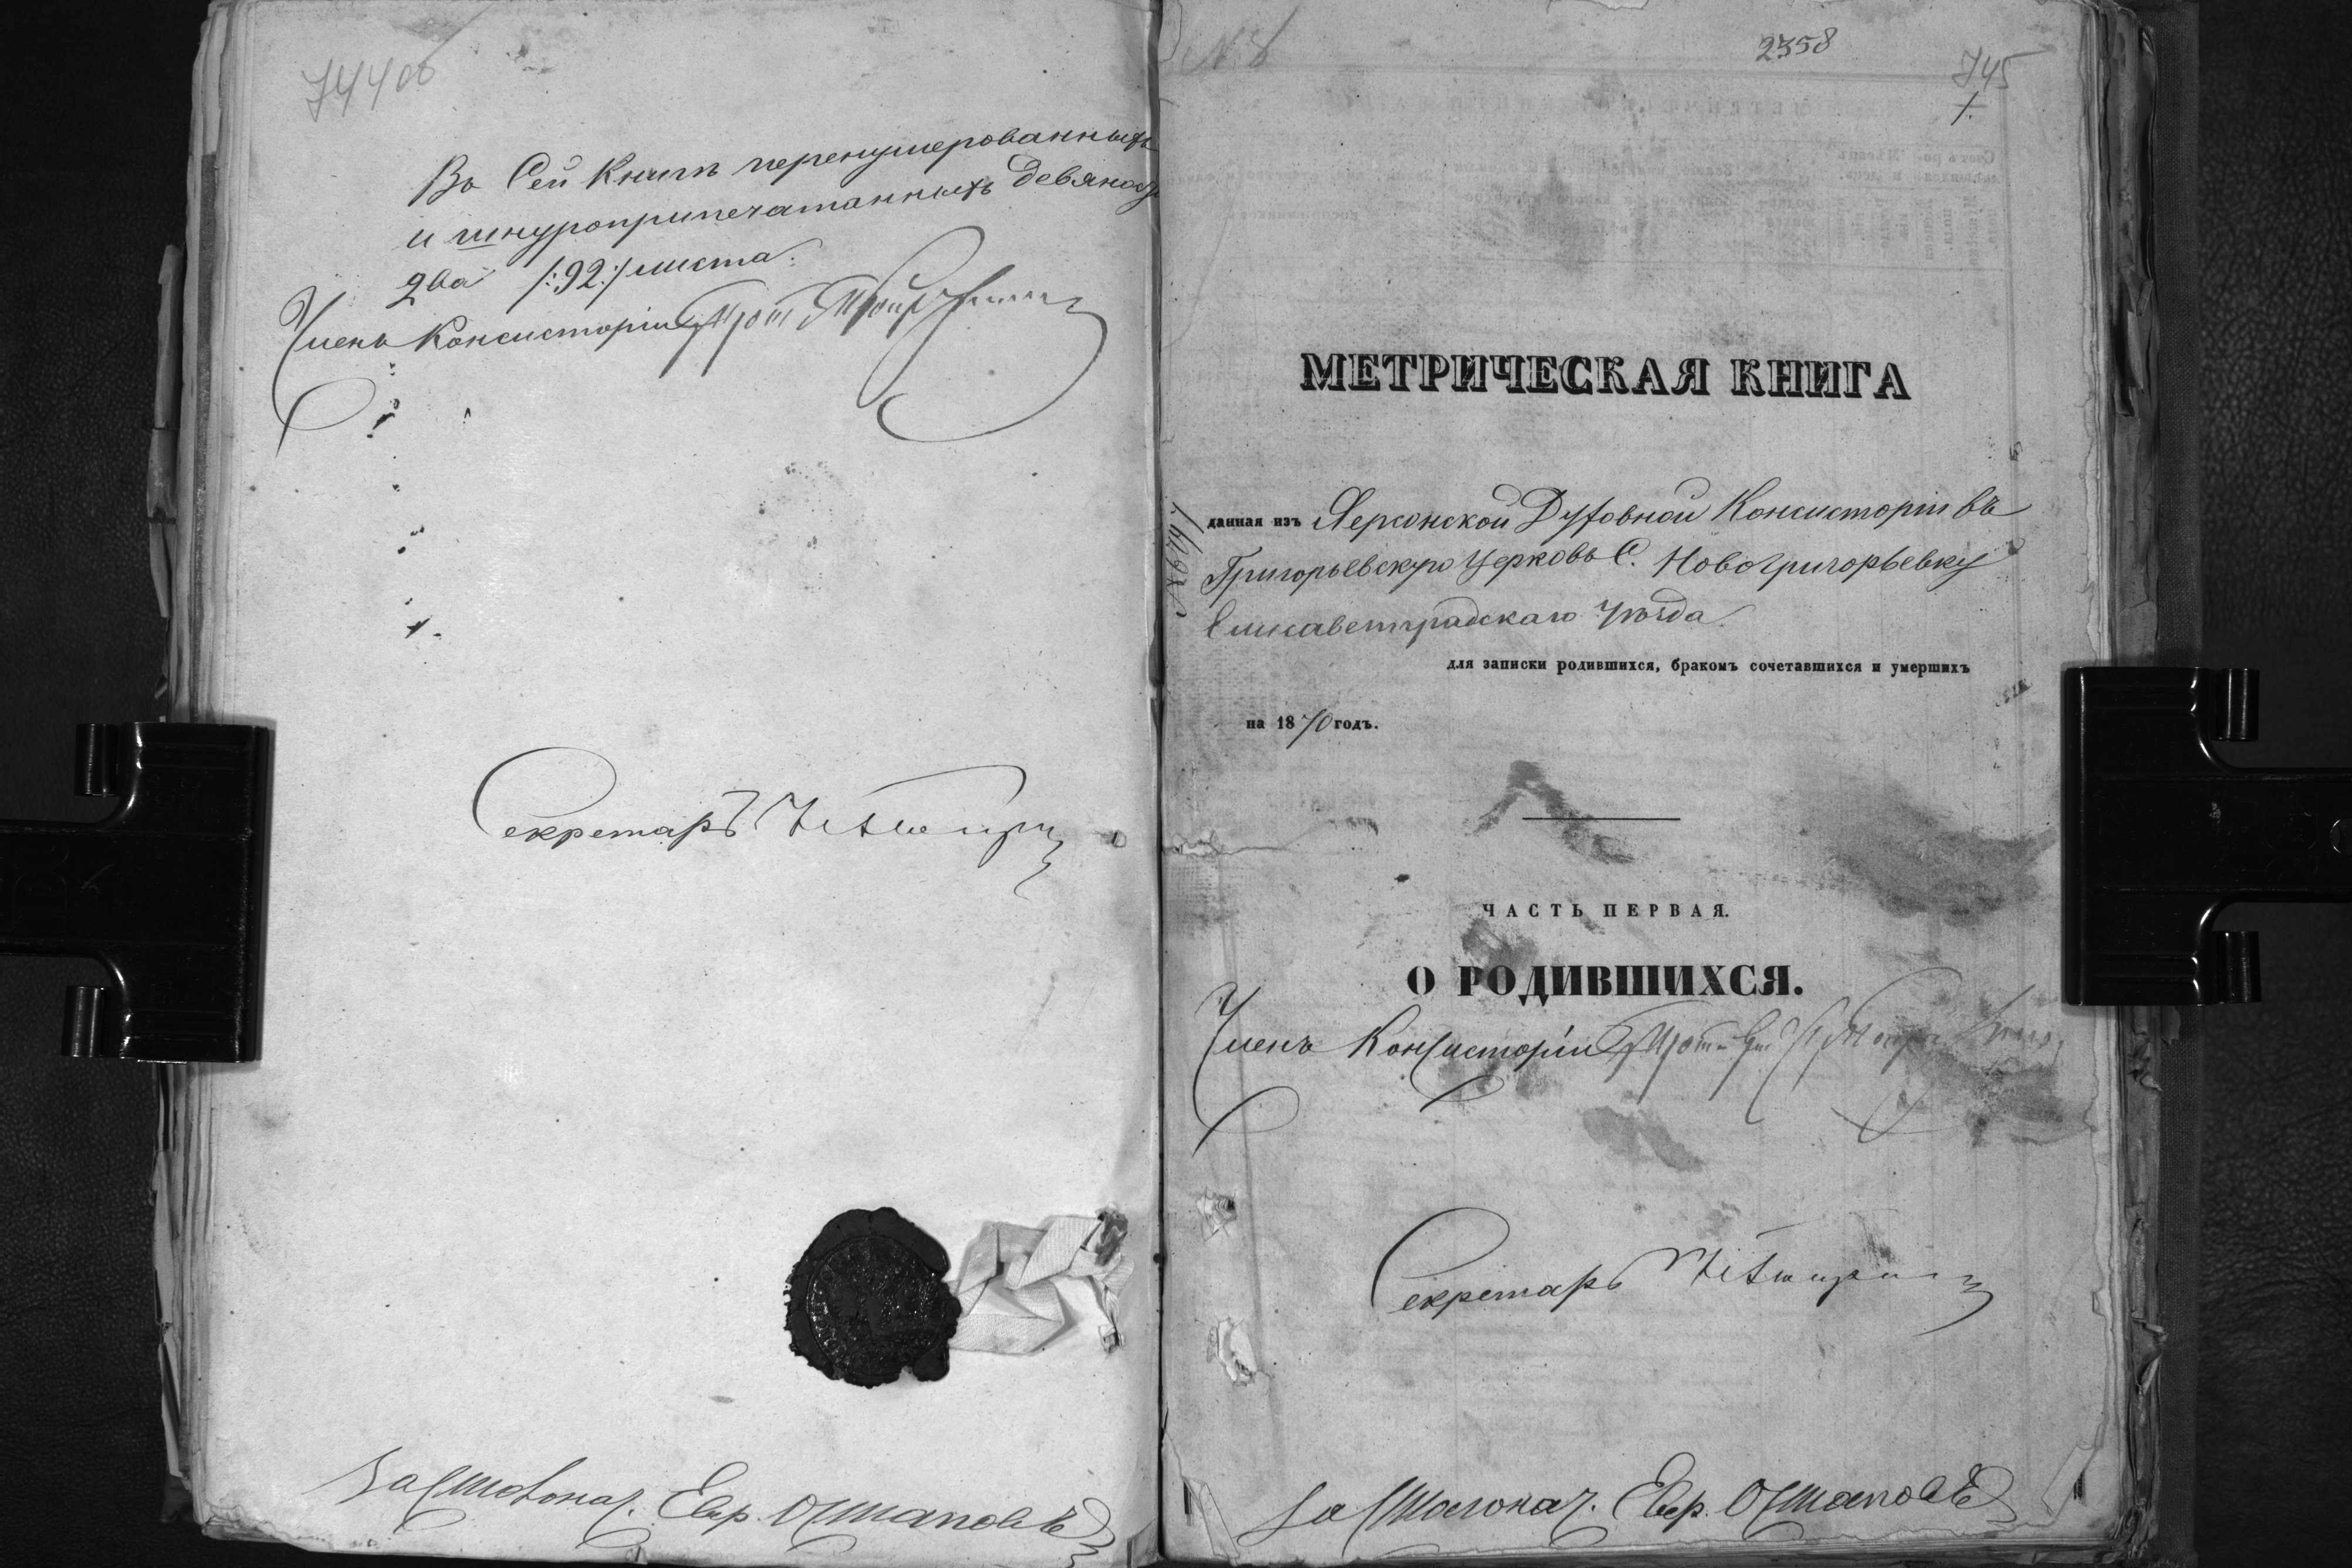 744об
Въ Сей Книгѣ перенумерованныхъ
и шнуроприпечатанныхъ девяносто
два /:92:/ листа.
Членъ Консисторіи
Секретарь
За Столонач. Евр. Остаповъ
№ 8
2358
745
1.
МЕТРИЧЕСКАЯ КНИГА
данная изъ Херсонской Духовной Консисторіи въ
Григорьевскую Церковь С. Новогригорьевку
Елисаветградскаго Уѣзда.
для записки родившихся, бракомъ сочетавшихся и умершихъ
на 1870 годъ.
ЧАСТЬ ПЕРВАЯ.
О РОДИВШИХСЯ.
Членъ Консисторіи
Секретарь
За Столонач. Евр. Остаповъ